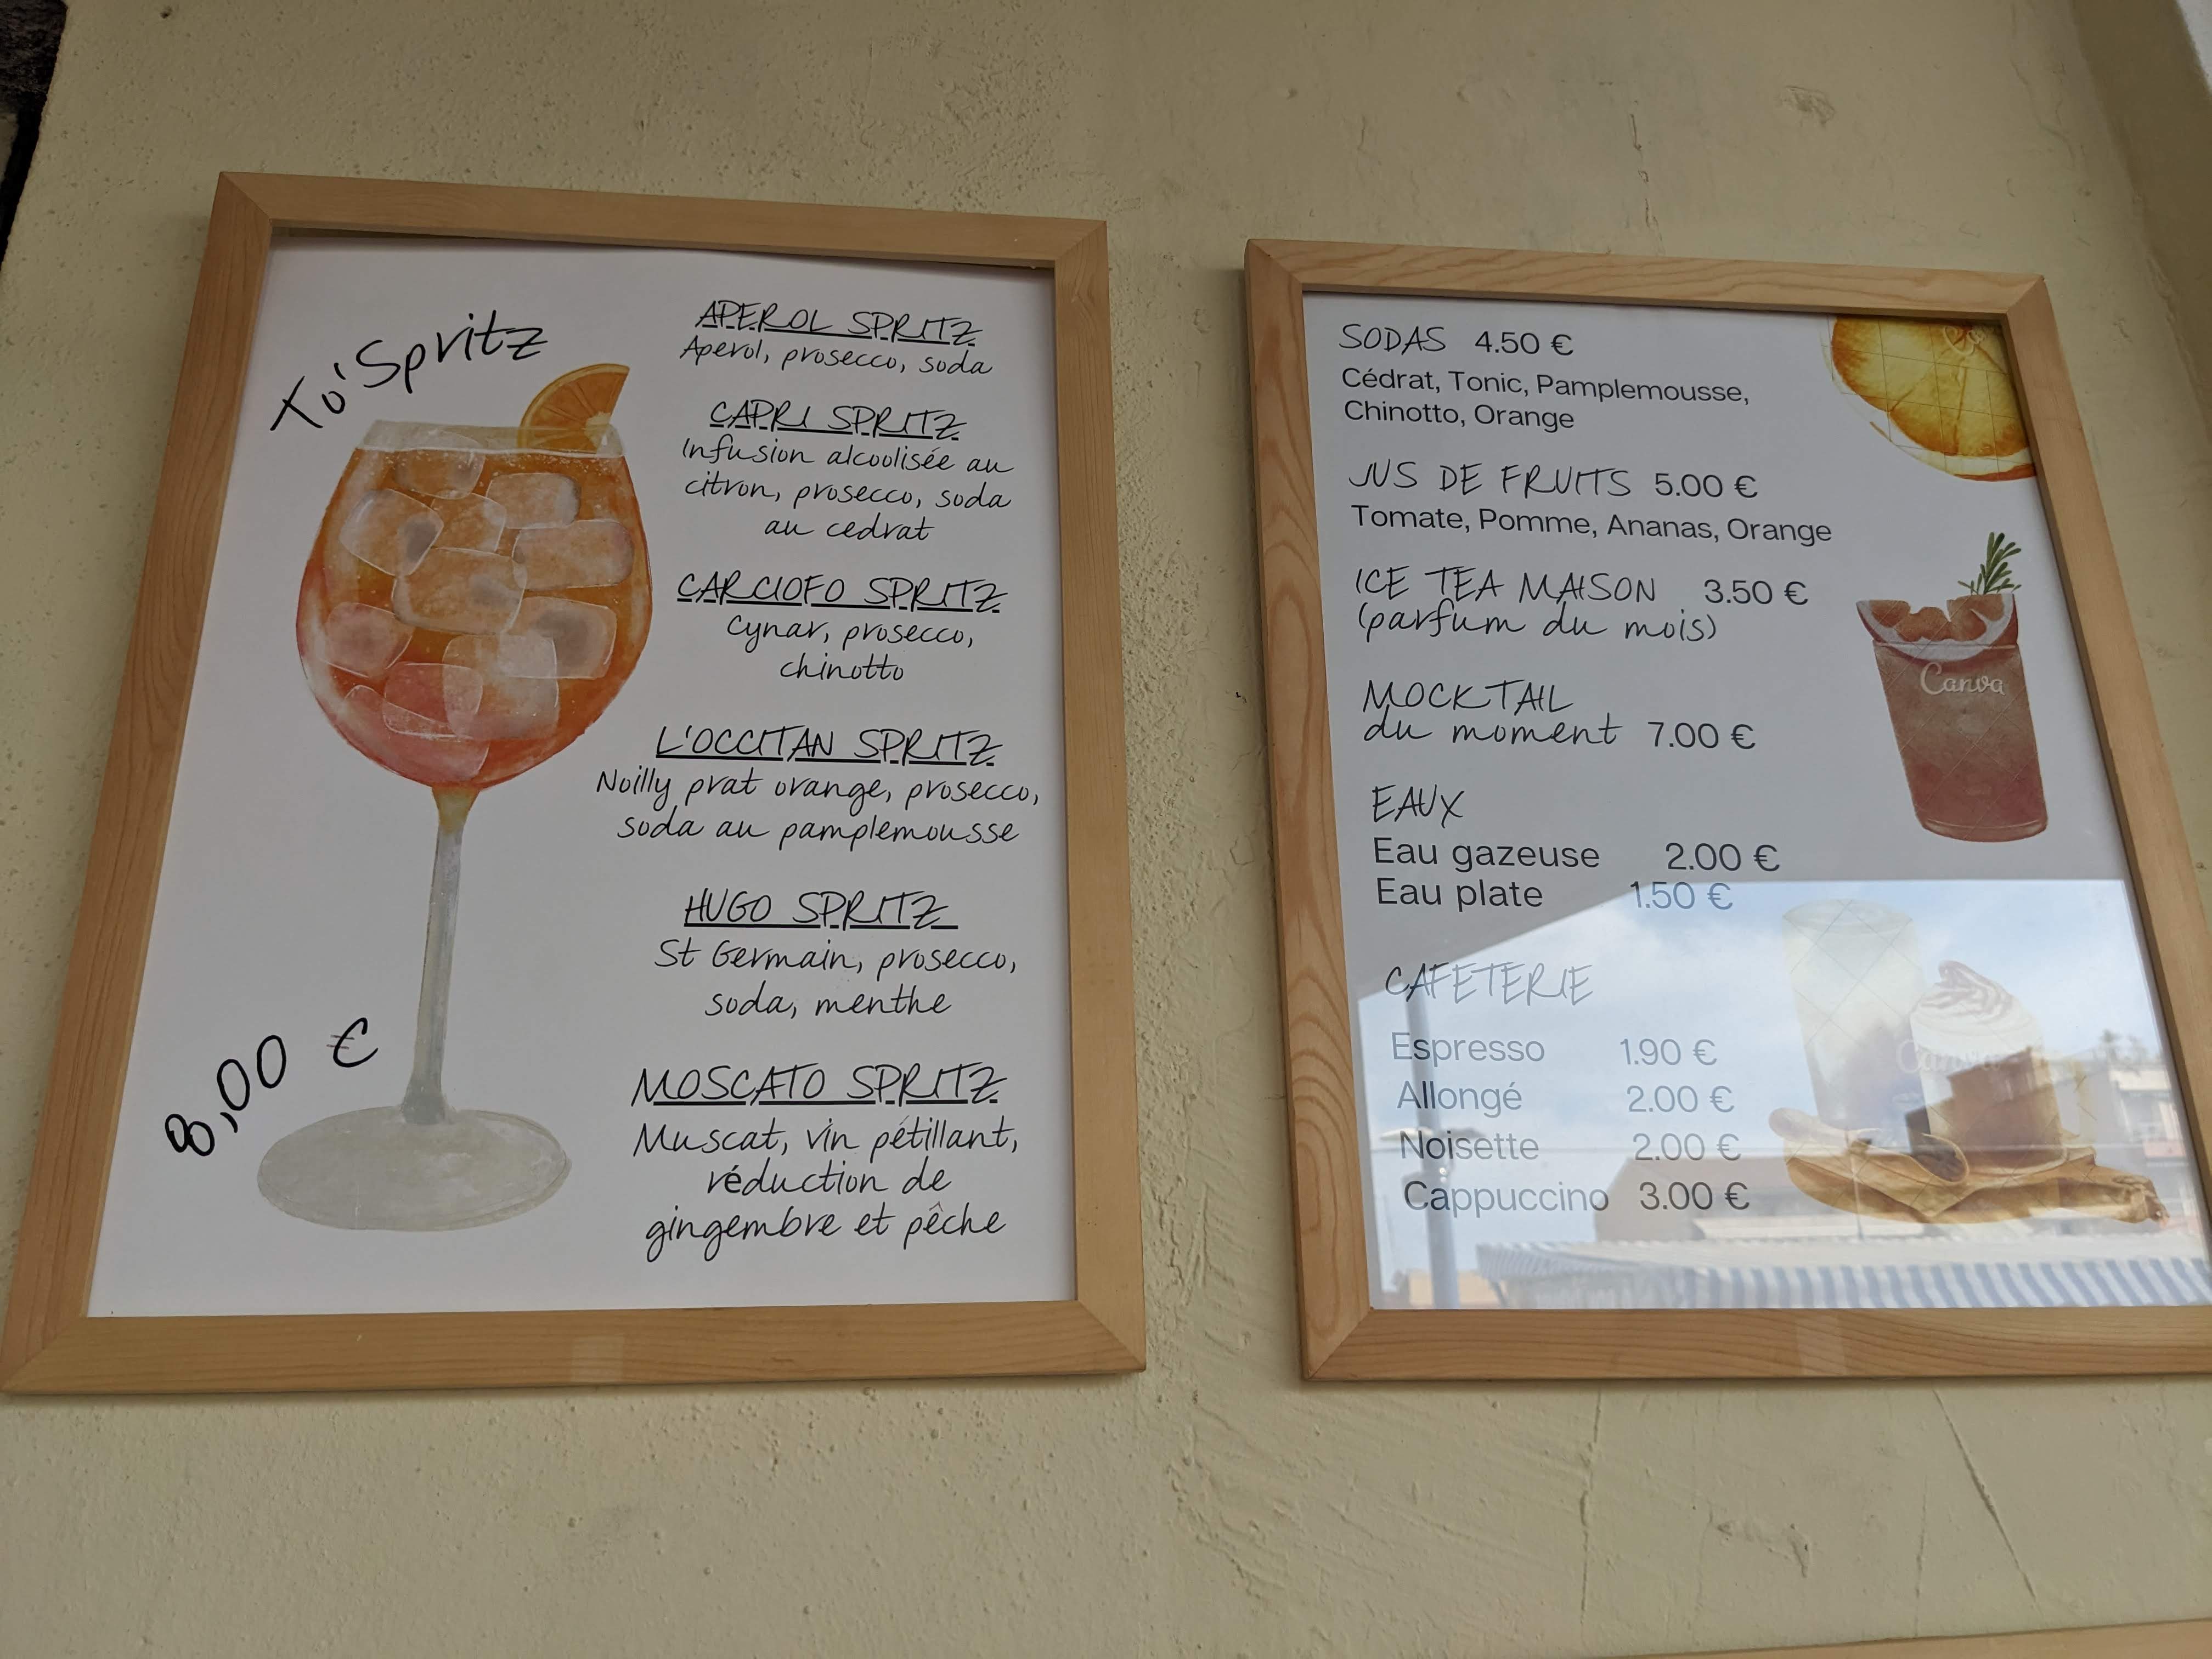 To'Spritz
APEROL SPRITZ
Aperol, prosecco, soda
CAPRI SPRITZ
Infusion alcoolisée au
citron, prosecco, soda
au cedrat
CARCIOFO SPRITZ
Cynar, prosecco,
chinotto
L'OCCITAN SPRITZ
Noilly prat orange, prosecco,
soda au pamplemousse
HUGO SPRITZ
St Germain, prosecco,
soda, menthe
MOSCATO SPRITZ
Muscat, vin pétillant,
réduction de
gingembre et pêche
8,00 €
SODAS 4.50 €
Cédrat, Tonic, Pamplemousse,
Chinotto, Orange
JUS DE FRUITS 5.00 €
Tomate, Pomme, Ananas, Orange
ICE TEA MAISON 3.50 €
(parfum du mois)
Canva
MOCKTAIL
du moment 7.00 €
EAUX
Eau gazeuse 2.00 €
Eau plate 1.50 €
CAFETERIE
Espresso 1.90 €
Canva
Allongé 2.00 €
Noisette 2.00 €
Cappuccino 3.00 €